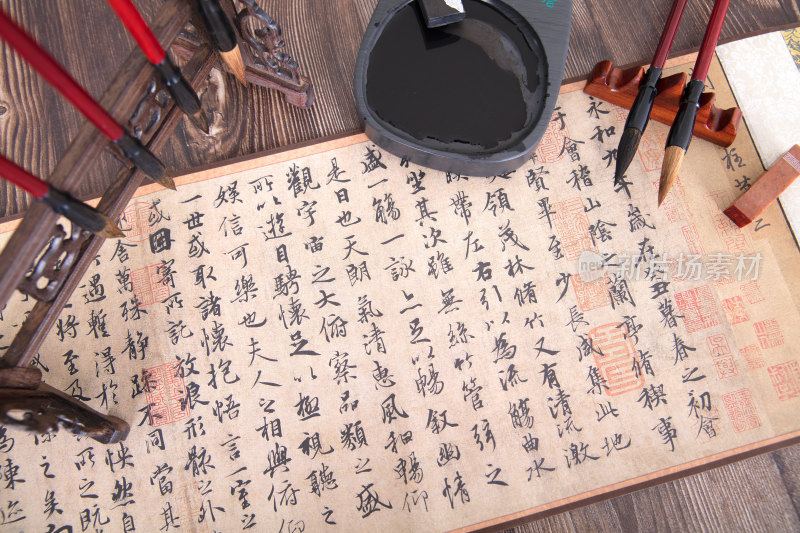 永和九歲在丑暮春之初會
于會稽山陰之蘭亭脩禊事
賢畢至少長咸集此地
領茂林脩竹又有清流激
帶左右引以為流觴曲水
坐其次雖無絲竹管弦之
盛一觴一詠亦足以暢敘幽情
是日也天朗氣清惠風和暢仰
觀宇宙之大俯察品類之盛
所以遊目騁懷足以極視聽之
娛信可樂也夫人之相與俯仰
一世或取諸懷抱悟言一室之
或因寄所託放浪形骸之外
萬殊靜躁不同當其
遇暫得於快然自
將至及所之既
係之矣
陳迹
新片场素材